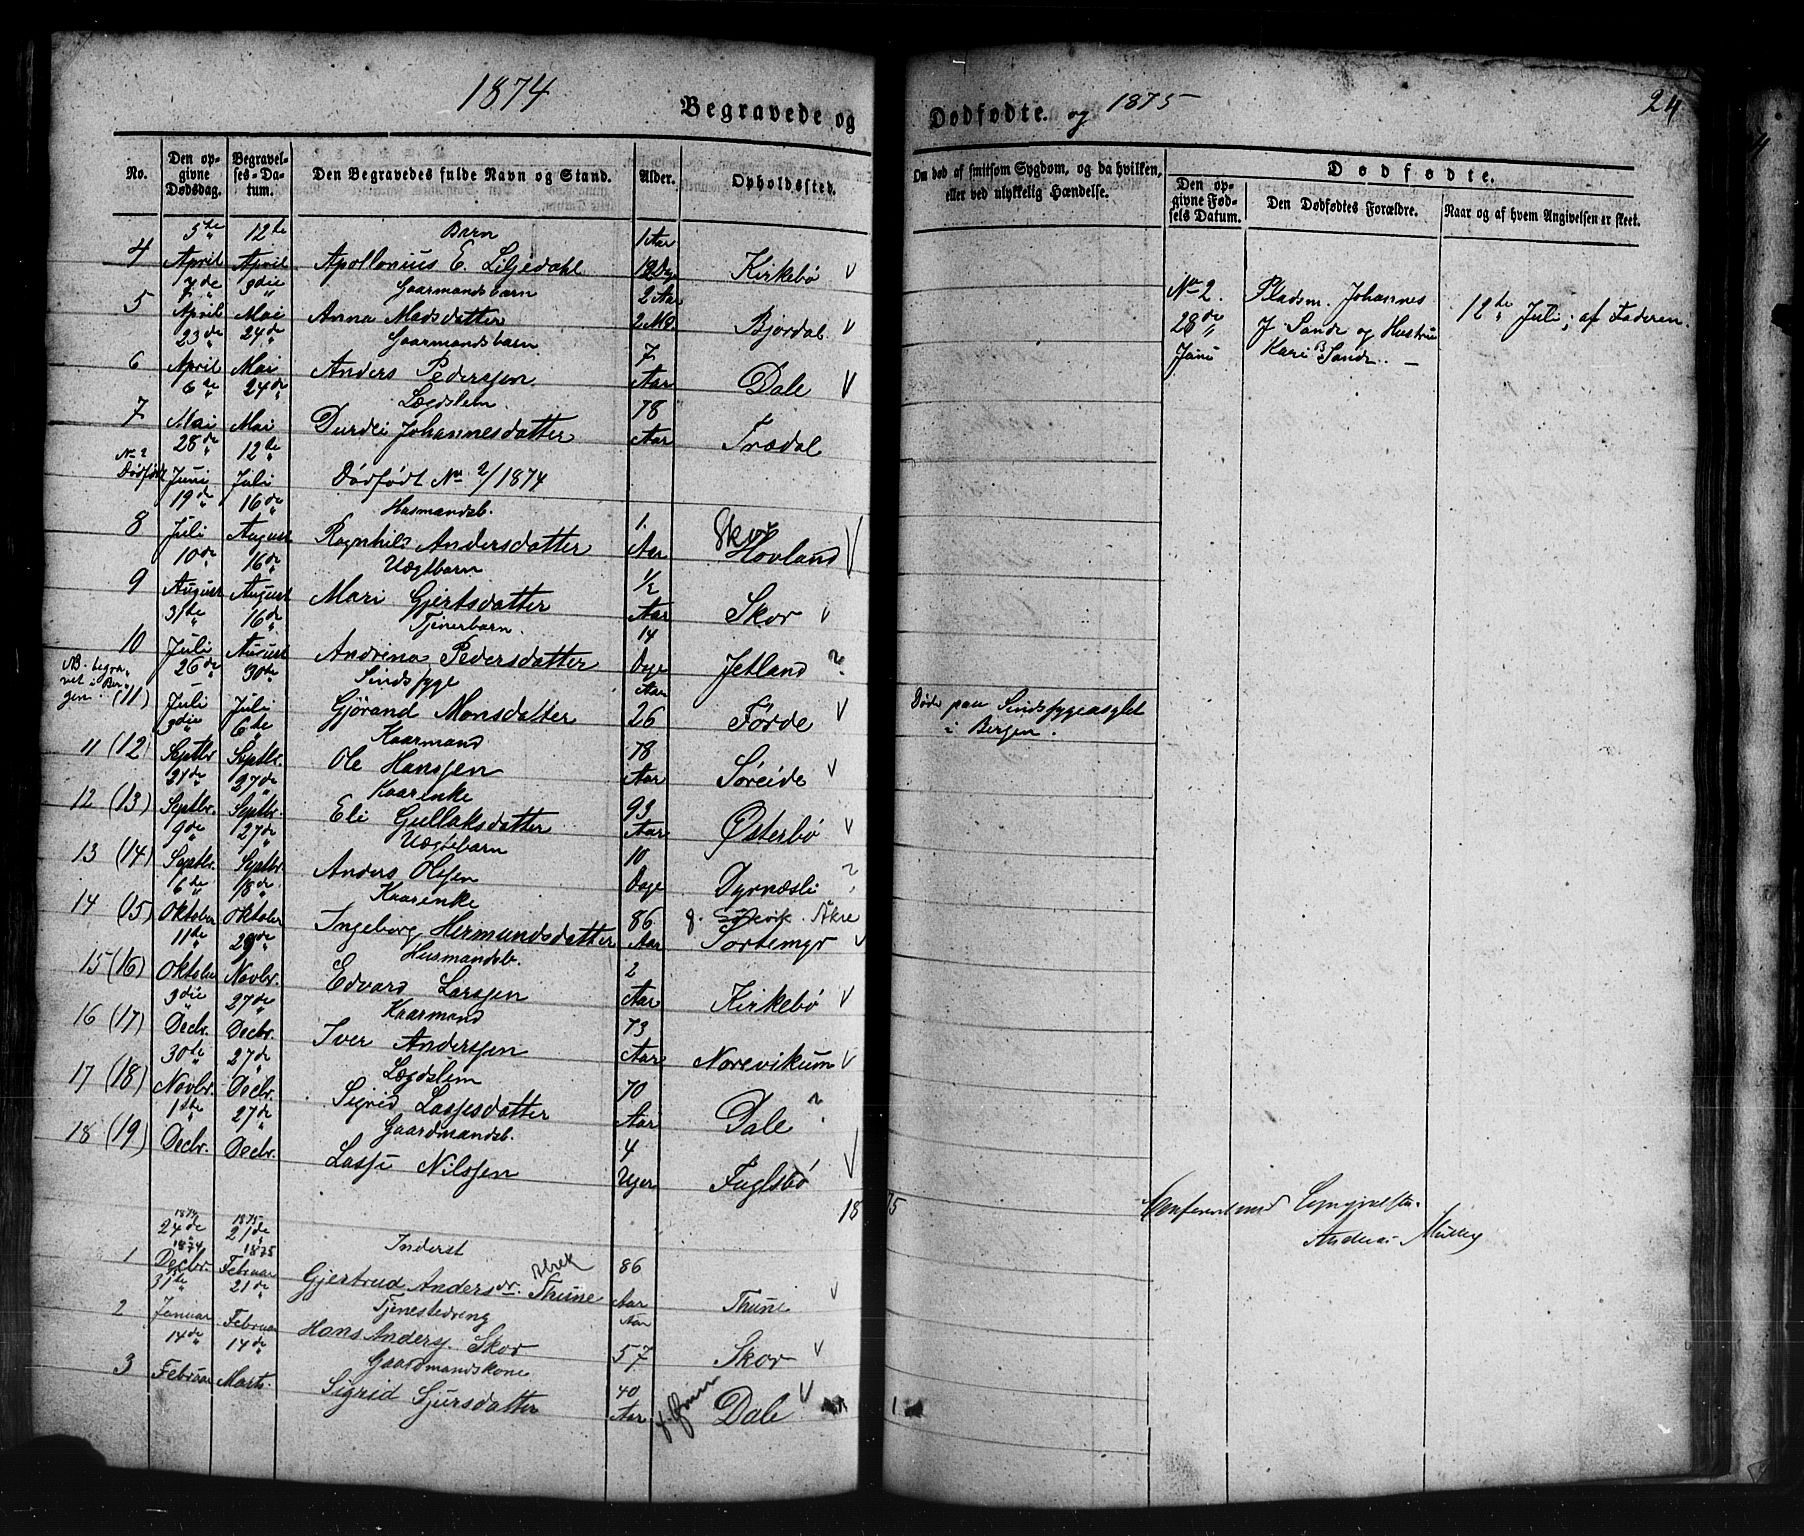 1874
Begravede og
Dødfødte. og 1875
24
No.
Den opgivne Dødsdag.
Begravelses-Datum.
Den Begravedes fulde Navn og Stand.
Alder.
Opholdssted.
Om død af smitsom Sygdom, og da hvilken, eller ved ulykkelig Hændelse.
Dødfødte.
Den opgivne Fødsels Datum.
Den Dødfødtes Forældre.
Naar og af hvem Angivelsen er skeet.
5te 12te Barn 1 Aar
4 April April Apollonius E. Liljedahl 12 Dg Kirkebø
7de 3die Gaarmandsbarn 2 Aar
5 April Mai Anna Madsdatter 2 Md. Bjordal
23de 24de Gaarmandsbarn 7
6 April Mai Anders Pederssen Aar Dale
6te 24de Lægdslem 78
7 Mai Mai Durdei Johannesdatter Aar Trædal
28de 12te
No 2 Dødfødt Juni Juli Dødfødt No 2/1874
19de 16de Husmandsb. 1.
8 Juli August Ragnhild Andersdatter Aar Skor Hovland
10de 16de Vægtbarn 1/2
9 August August Mari Gjertsdatter Aar Skor
31te 16de Tjenerbarn 14
10 Juli August Andrina Pedersdatter Dage Jetland ?
NB. begravet i Bergen.
26de 30te Sindssyge Aar
(11) Juli Juli Gjørand Monsdatter 26 Førde
Døde paa Sindssygeasylet i Bergen.
3die 6te Kaarmand 78
11 (12) Septbr Septbr. Ole Hanssen Aar Søreide
21de 27de Kaarenke 93
12 (13) Septbr. Septbr. Eli Gullaksdatter Aar Østerbø
9de 27de Vægtebarn 10
13 (14) Septbr. Septbr. Anders Olssen Dage Dyrnæsli ?
6te 18de Kaarenke 86
14 (15) Oktober Oktober Ingeborg Hermundsdatter Aar Åkre Tortemyr
11te 29de Husmandsb. 2
15 (16) Oktober Novbr. Edvard Larssen Aar Kirkebø
3die 27de Kaarmand 73
16 (17) Decbr. Decbr. Iver Anderssen Aar Norevikum
30te 27de Lægdslem 70
17 (18) Novbr. Decbr. Sigrid Lassesdatter Aar Dale ?
1ste 27de Gaardmandsb. 4
18 (19) Decbr. Decbr. Lasse Nilssen Uger Fuglsbø
1875
1874 1875
24de 21de
1874 1875 Inderst 86
1 Decbr Februar Gjertrud Andersdr. Thune Aar Thune
31te 21de Tjenestedreng Aar
2 Januar Februar Hans Anderss. Skor 57 Skor
14de 14de Gaardmandskone 40
3 Februar Marts. Sigrid Sjursdatter Aar Dale
No 2. Pladsm. Johannes 12te Juli; af Faderen.
28de J. Sande og Hustru
Juni Kari B Sande. —
Andreas